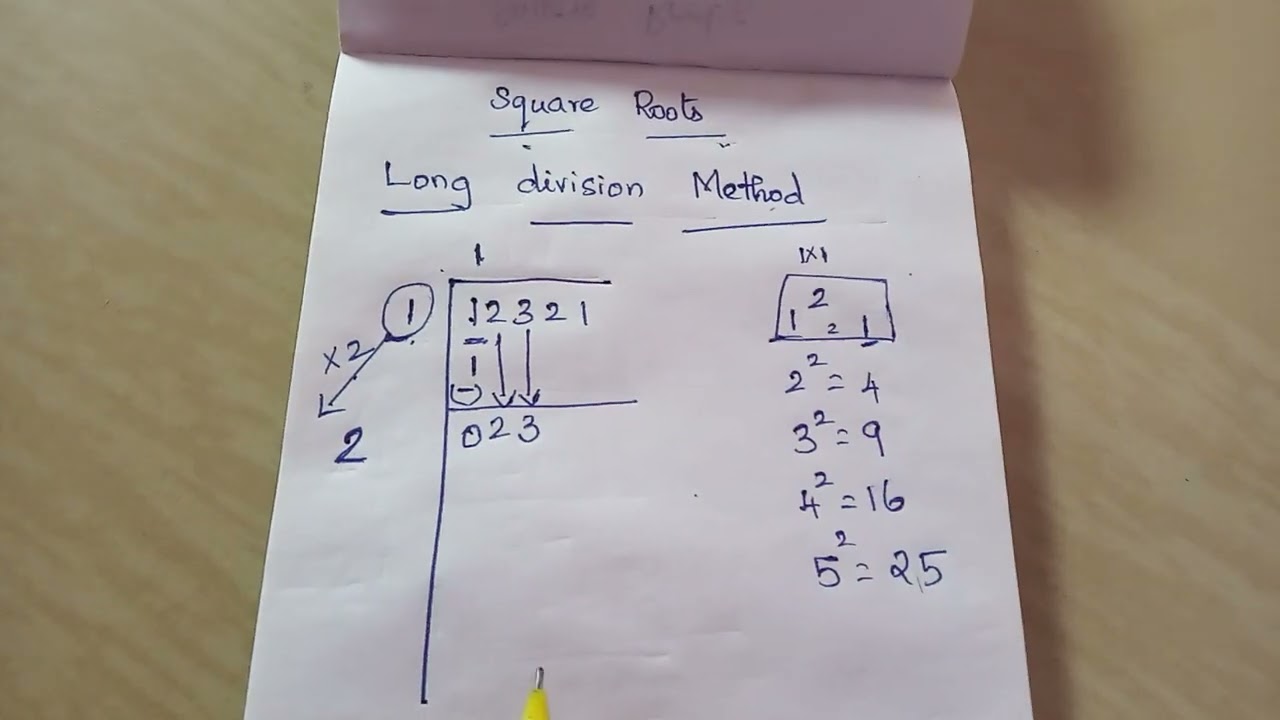 Square Roots
Long division Method
1
1 12321
×2 1
(-)
2 023
1×1
1² = 1
2² = 4
3² = 9
4² = 16
5² = 25